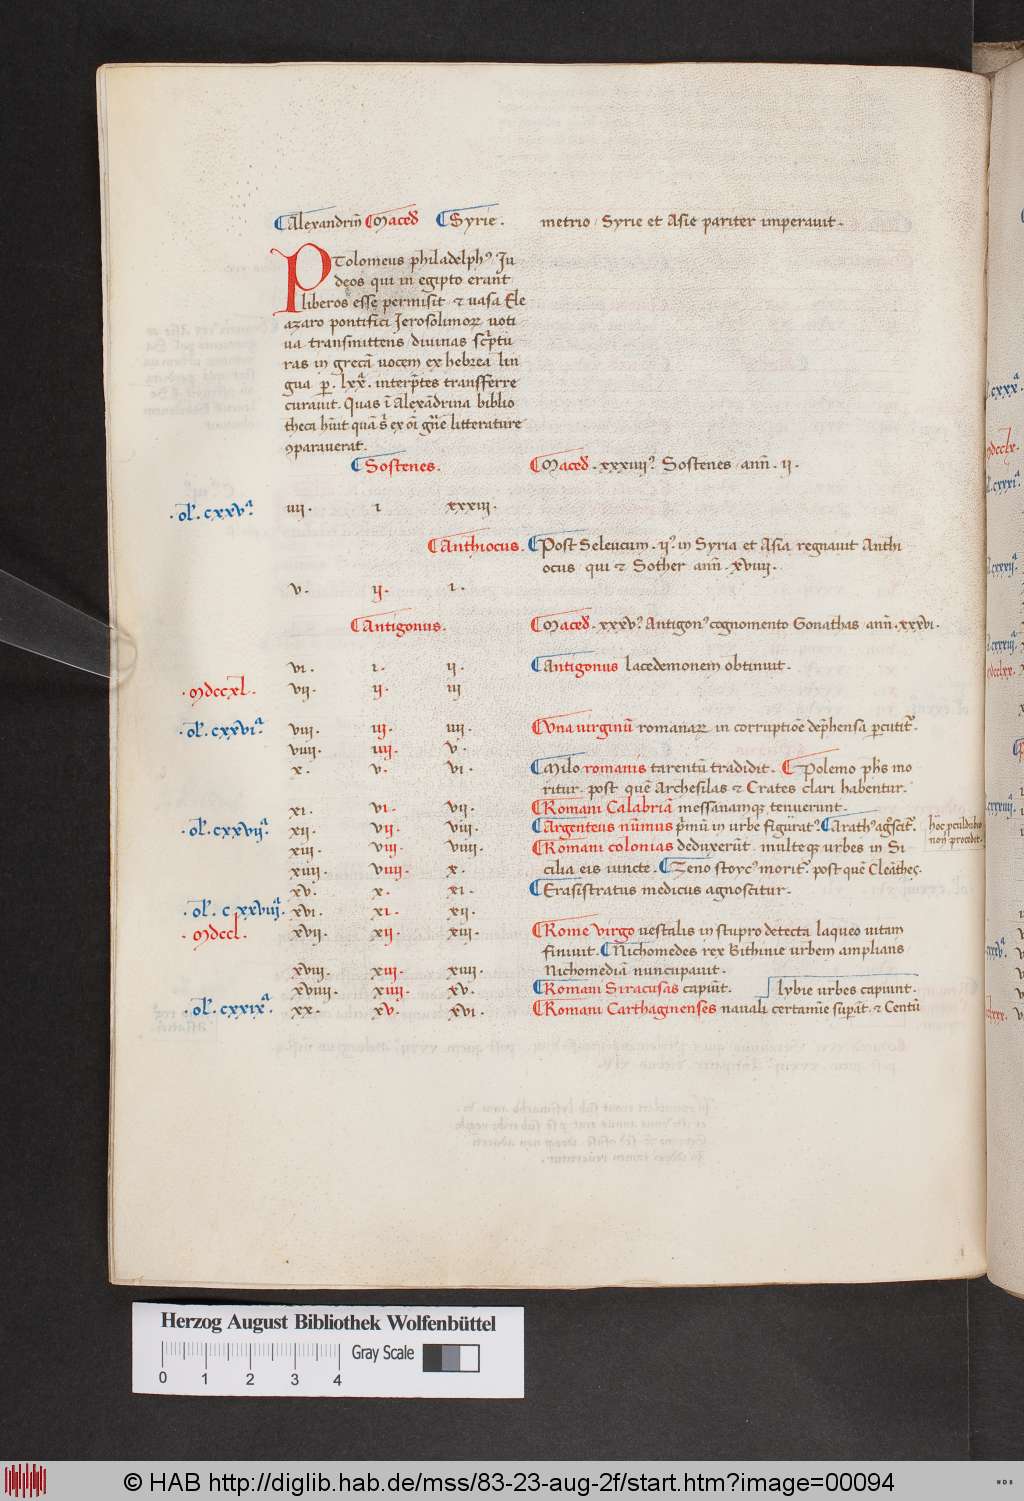 Alexandriñ Maced̃ Syrie. metrio / Syrie et Asie pariter imperauit.
PTolomeus philadelphꝰ Iu
deos qui in egipto erant
liberos esse permisit ⁊ uasa Ele
azaro pontifici Ierosolimoꝝ uoti
ua transmittens / diuinas scⁱptu
ras in grecã uocem ex hebrea lin
gua ꝑ. lxxᵃ. interp̃tes transfferre
curauit. Quas ĩ Alexãdrina biblio
theca hũit quas
ex oĩ gñe litterature
ꝯparauerat.
Sostenes. Maced̃. xxxiiijᵒ. Sostenes / anñ. ij.
·ol̃. cxxvᵃ iiij. i xxxiij.
Anthiocus. Post Seleucum. ijᵒ. in Syria et Asia regnauit Anthi
ocus / qui ⁊ Sother anñ. xviiij.
v. ij. i.
Antigonus. Maced̃. xxxvᵒ. Antigonꝰ cognomento Gonathas anñ. xxxvi.
vi. i. ij. Antigonus lacedemonem obtinuit.
·mdccxl. vij. ij. iij
·ol̃. cxxviᵃ viij. iij. iiij. Vna uirginũ romanaꝝ in corruptiõe dep̃hensa ꝑcutitᷣ.
viiij. iiij. v.
x. v. vi. Milo romanis tarentũ tradidit. Polemo pħs mo
ritur. post quẽ Archesilas ⁊ Crates clari habentur.
xi. vi. vij. Romani Calabriã messanamqꝫ tenuerunt.
·ol̃. cxxvijᵃ xij. vij. viij. Argenteus nũmus p̃mũ in urbe figuratᷣ. Arathꝰ ag̃scitᷣ.
xiij. viij. viiij. Romani colonias deduxerũt. multeqꝫ urbes in Si
xiiij. viiij. x. cilia eis iuncte. Zeno stoycꝰ moritᷣ. post quẽ Cleãthes.
xv. x. xi. Erasistratus medicus agnoscitur.
·ol̃. cxxviijᵃ. xvi. xi. xij.
·mdccl. xvij. xij. xiij. Rome virgo uestalis in stupro detecta laqueo uitam
finiuit. Nichomedes rex Bithinie urbem amplians
xviij. xiij. xiiij. Nichomediã nuncupauit.
xviiij. xiiij. xv. Romani Siracusas capiũt. lybie urbes capiunt.
·ol̃. cxxixᵃ xx. xv. xvi. Romani Carthaginenses nauali certamĩe suꝑãt. ⁊ Centũ
non procedit.
Herzog August Bibliothek Wolfenbüttel
Gray Scale
0 1 2 3 4
© HAB http://diglib.hab.de/mss/83-23-aug-2f/start.htm?image=00094